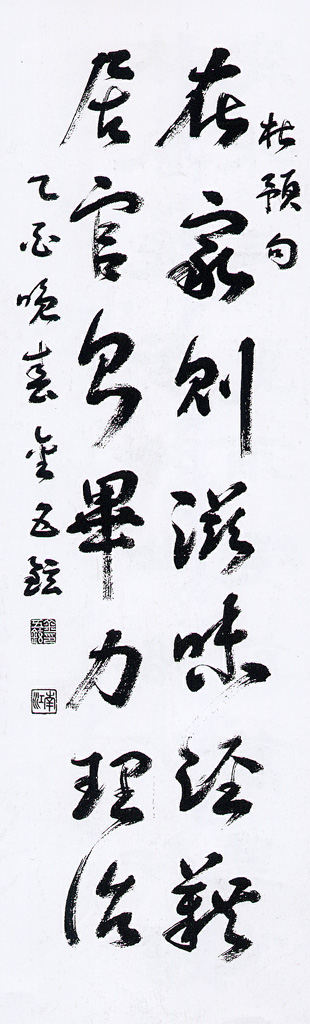 杜預句
在家則滋味經籍
居官則畢力理治
乙酉晚春金五鉉
南江